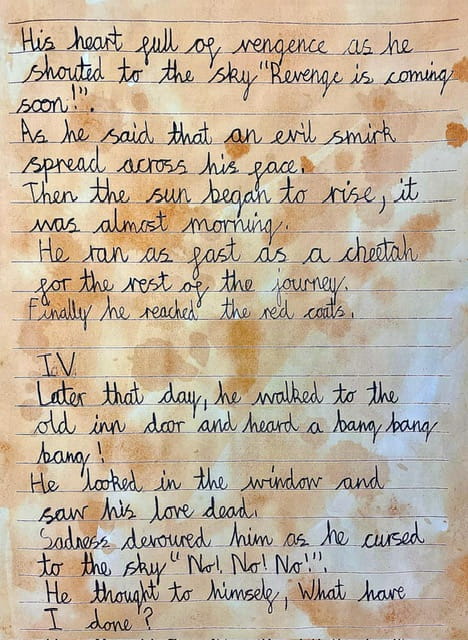 His heart full of vengence as he
shouted to the sky "Revenge is coming
soon!".
As he said that an evil smirk
spread across his face.
Then the sun began to rise, it
was almost morning.
He ran as fast as a cheetah
for the rest of the journey.
Finally he reached the red coats.
I.V.
Later that day, he walked to the
old inn door and heard a bang bang
bang!
He looked in the window and
saw his love dead.
Sadness devoured him as he cursed
to the sky "No! No! No!".
He thought to himself, What have
I done?